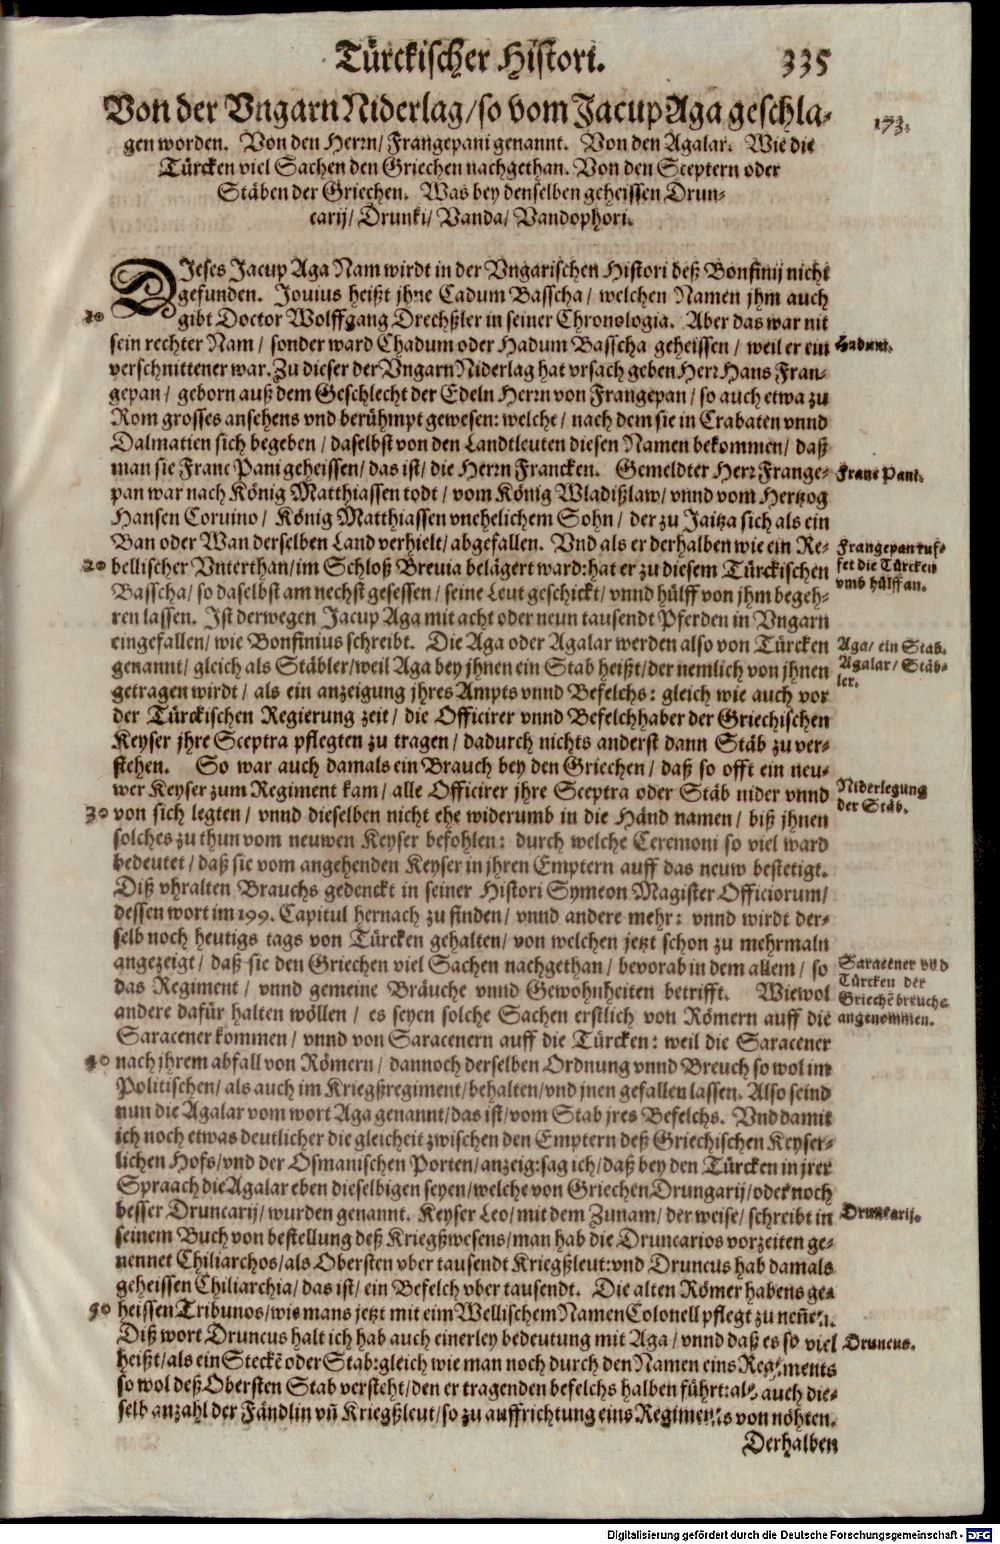 Türckischer Histori. 335
Von der Vngarn Niderlag/ so vom Jacup Aga geschla-
gen worden. Von den Herrn/ Frangepani genannt. Von den Agalar. Wie die
Türcken viel Sachen den Griechen nachgethan. Von den Sceptern oder
Stäben der Griechen. Was bey denselben geheissen Drun-
carij/ Drunki/ Vanda/ Vandophori.
173.
DIeses Jacup Aga Nam wirdt in der Vngarischen Histori deß Bonfinij nicht
gefunden. Jouius heißt jhne Cadum Basscha/ welchen Namen jhm auch
10 gibt Doctor Wolffgang Drechßler in seiner Chronologia. Aber das war nit
sein rechter Nam/ sonder ward Chadum oder Hadum Basscha geheissen/ weil er ein
Hadum.
verschnittener war. Zu dieser der Vngarn Niderlag hat vrsach geben Herr Hans Fran-
gepan/ geborn auß dem Geschlecht der Edeln Herrn von Frangepan/ so auch etwa zu
Rom grosses ansehens vnd berühmpt gewesen: welche/ nach dem sie in Crabaten vnnd
Dalmatien sich begeben/ daselbst von den Landtleuten diesen Namen bekommen/ daß
man sie Franc Pani geheissen/ das ist/ die Herrn Francken. Gemeldter Herr Frange-
Franc Pani.
pan war nach König Matthiassen todt/ vom König Wladißlaw/ vnnd vom Hertzog
Hansen Coruino/ König Matthiassen vnehelichem Sohn/ der zu Jaitza sich als ein
Ban oder Wan derselben Land verhielt/ abgefallen. Vnd als er derhalben wie ein Re-
20 bellischer Vnterthan/ im Schloß Breuia belägert ward: hat er zu diesem Türckischen
Basscha/ so daselbst am nechst gesessen/ seine Leut geschickt/ vnnd hülff von jhm begeh-
Frangepan ruf-
fet die Türcken
vmb hülff an.
ren lassen. Ist derwegen Jacup Aga mit acht oder neun tausendt Pferden in Vngarn
eingefallen/ wie Bonfinius schreibt. Die Aga oder Agalar werden also von Türcken
genannt/ gleich als Stäbler/ weil Aga bey jhnen ein Stab heißt/ der nemlich von jhnen
Aga/ ein Stab.
Agalar/ Stäb-
ler.
getragen wirdt/ als ein anzeigung jhres Ampts vnnd Befelchs: gleich wie auch vor
der Türckischen Regierung zeit/ die Officirer vnnd Befelchhaber der Griechischen
Keyser jhre Sceptra pflegten zu tragen/ dadurch nichts anderst dann Stäb zu ver-
stehen. So war auch damals ein Brauch bey den Griechen/ daß so offt ein neu-
wer Keyser zum Regiment kam/ alle Officirer jhre Sceptra oder Stäb nider vnnd
Niderlegung
der Stäb.
30 von sich legten/ vnnd dieselben nicht ehe widerumb in die Händ namen/ biß jhnen
solches zu thun vom neuwen Keyser befohlen: durch welche Ceremoni so viel ward
bedeutet/ daß sie vom angehenden Keyser in jhren Emptern auff das neuw bestetigt.
Diß vhralten Brauchs gedenckt in seiner Histori Symeon Magister Officiorum/
dessen wort im 199. Capitul hernach zu finden/ vnnd andere mehr: vnnd wirdt der-
selb noch heutigs tags von Türcken gehalten/ von welchen jetzt schon zu mehrmaln
angezeigt/ daß sie den Griechen viel Sachen nachgethan/ bevorab in dem allem/ so
das Regiment/ vnnd gemeine Bräuche vnnd Gewohnheiten betrifft. Wiewol
andere dafür halten wöllen/ es seyen solche Sachen erstlich von Römern auff die
Saracener vnd
Türcken der
Griechē breuche
angenommen.
Saracener kommen/ vnnd von Saracenern auff die Türcken: weil die Saracener
40 nach jhrem abfall von Römern/ dannoch derselben Ordnung vnnd Breuch so wol im
Politischen/ als auch im Kriegßregiment/ behalten/ vnd jnen gefallen lassen. Also seind
nun die Agalar vom wort Aga genannt/ das ist/ vom Stab jres Befelchs. Vnd damit
ich noch etwas deutlicher die gleicheit zwischen den Emptern deß Griechischen Keyser-
lichen Hofs/ vnd der Osmanischen Porten/ anzeig: sag ich/ daß bey den Türcken in jrer
Spraach die Agalar eben dieselbigen seyen/ welche von Griechen Drungarij/ oder noch
besser Druncarij/ wurden genannt. Keyser Leo/ mit dem Zunam/ der weise/ schreibt in
Druncarij.
seinem Buch von bestellung deß Kriegßwesens/ man hab die Druncarios vorzeiten ge-
nennet Chiliarchos/ als Obersten vber tausendt Kriegßleut: vnd Druncus hab damals
geheissen Chiliarchia/ das ist/ ein Befelch vber tausendt. Die alten Römer habens ge-
50 heissen Tribunos/ wie mans jetzt mit eim Wellischem Namen Colonell pflegt zu neñen.
Diß wort Druncus halt ich hab auch einerley bedeutung mit Aga/ vnnd daß es so viel
Druncus.
heißt/ als ein Steckē oder Stab: gleich wie man noch durch den Namen eins Regiments
so wol deß Obersten Stab versteht/ den er tragenden befelchs halben führt: als auch die-
selb anzahl der Fändlin vñ Kriegßleut/ so zu auffrichtung eins Regiments von nöhten.
Derhalben
Digitalisierung gefördert durch die Deutsche Forschungsgemeinschaft - DFG